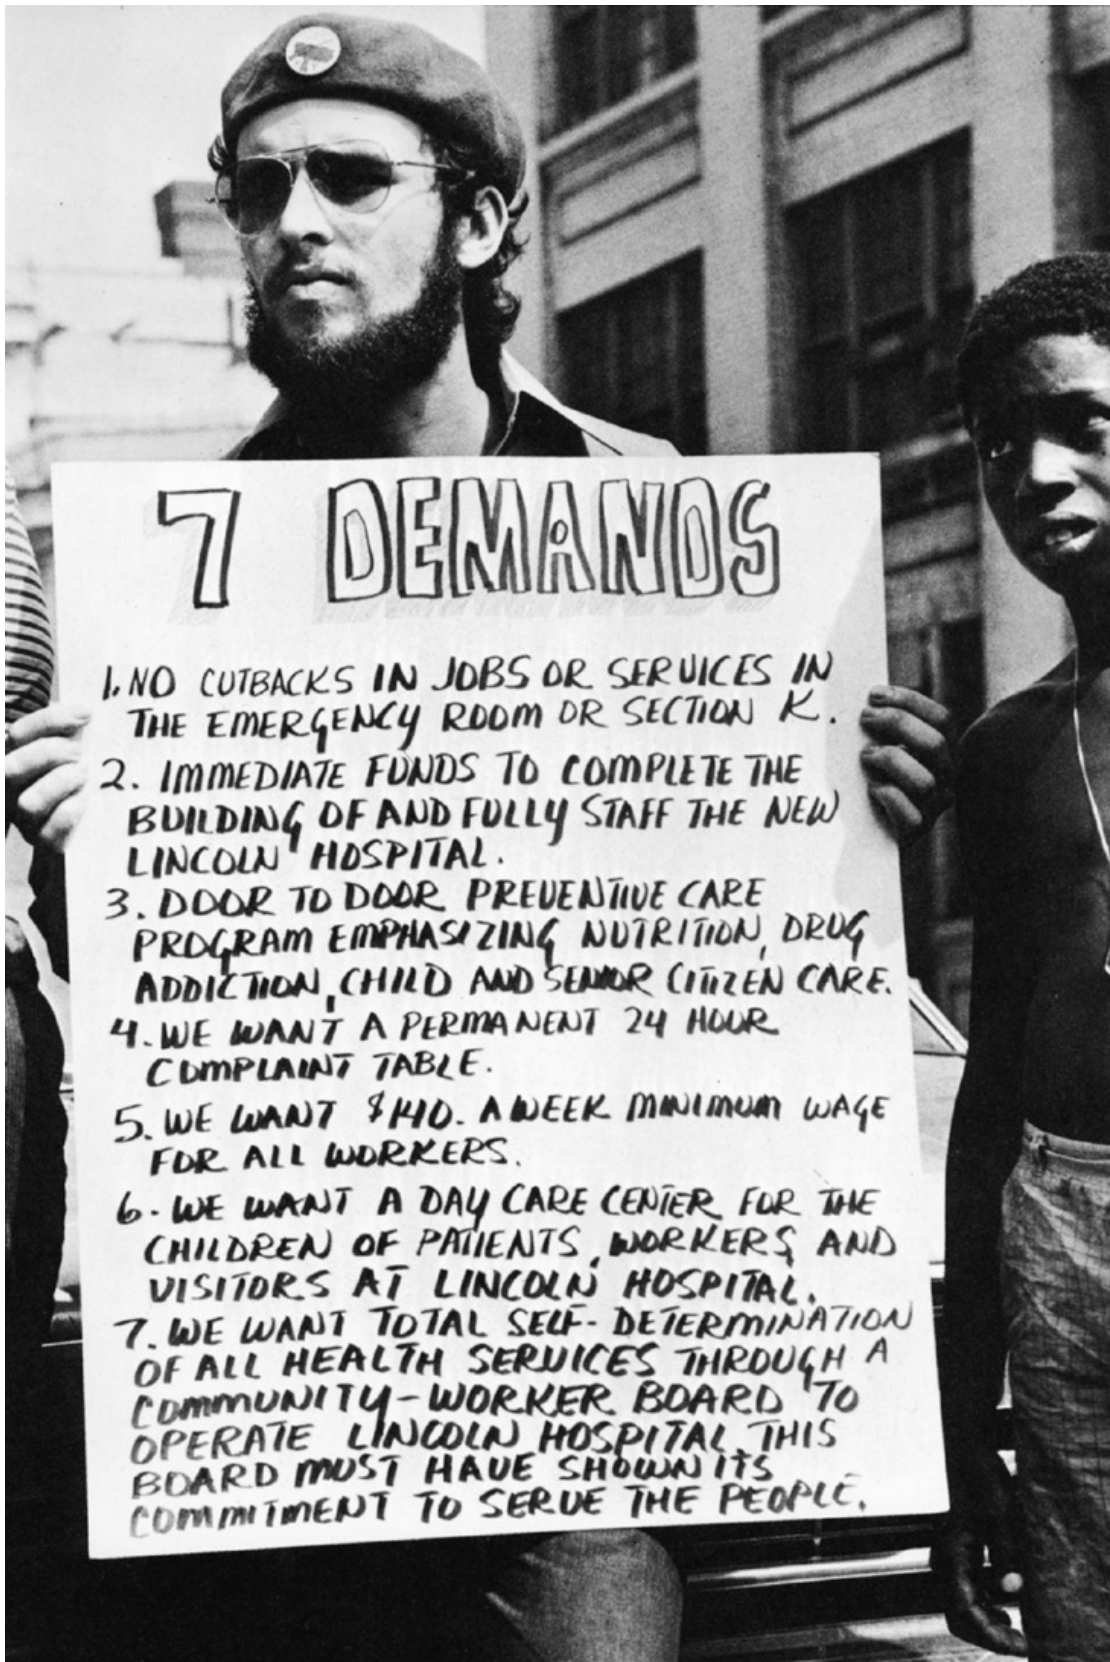 7 DEMANDS
1. NO CUTBACKS IN JOBS OR SERVICES IN
THE EMERGENCY ROOM OR SECTION K.
2. IMMEDIATE FUNDS TO COMPLETE THE
BUILDING OF AND FULLY STAFF THE NEW
LINCOLN HOSPITAL.
3. DOOR TO DOOR PREVENTIVE CARE
PROGRAM EMPHASIZING NUTRITION, DRUG
ADDICTION, CHILD AND SENIOR CITIZEN CARE.
4. WE WANT A PERMANENT 24 HOUR
COMPLAINT TABLE.
5. WE WANT $140. A WEEK MINIMUM WAGE
FOR ALL WORKERS.
6. WE WANT A DAY CARE CENTER FOR THE
CHILDREN OF PATIENTS, WORKERS AND
VISITORS AT LINCOLN HOSPITAL.
7. WE WANT TOTAL SELF-DETERMINATION
OF ALL HEALTH SERVICES THROUGH A
COMMUNITY-WORKER BOARD TO
OPERATE LINCOLN HOSPITAL. THIS
BOARD MUST HAVE SHOWN ITS
COMMITMENT TO SERVE THE PEOPLE.